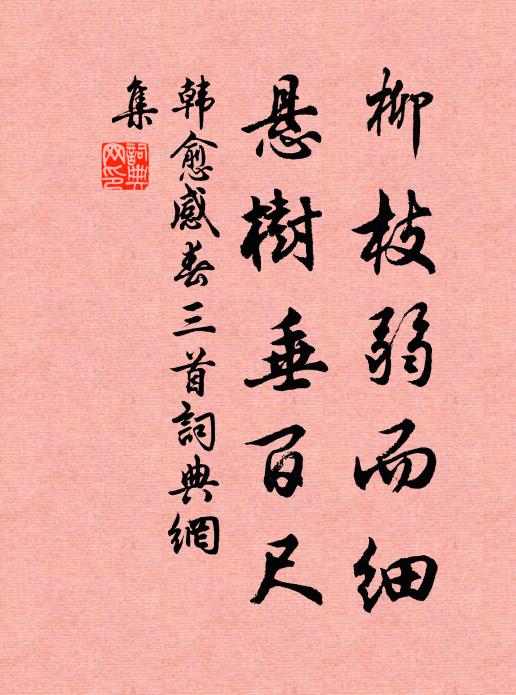 柳枝弱而细
悬樹垂百尺
韩愈感春三首詞典網
集
詞典
网印